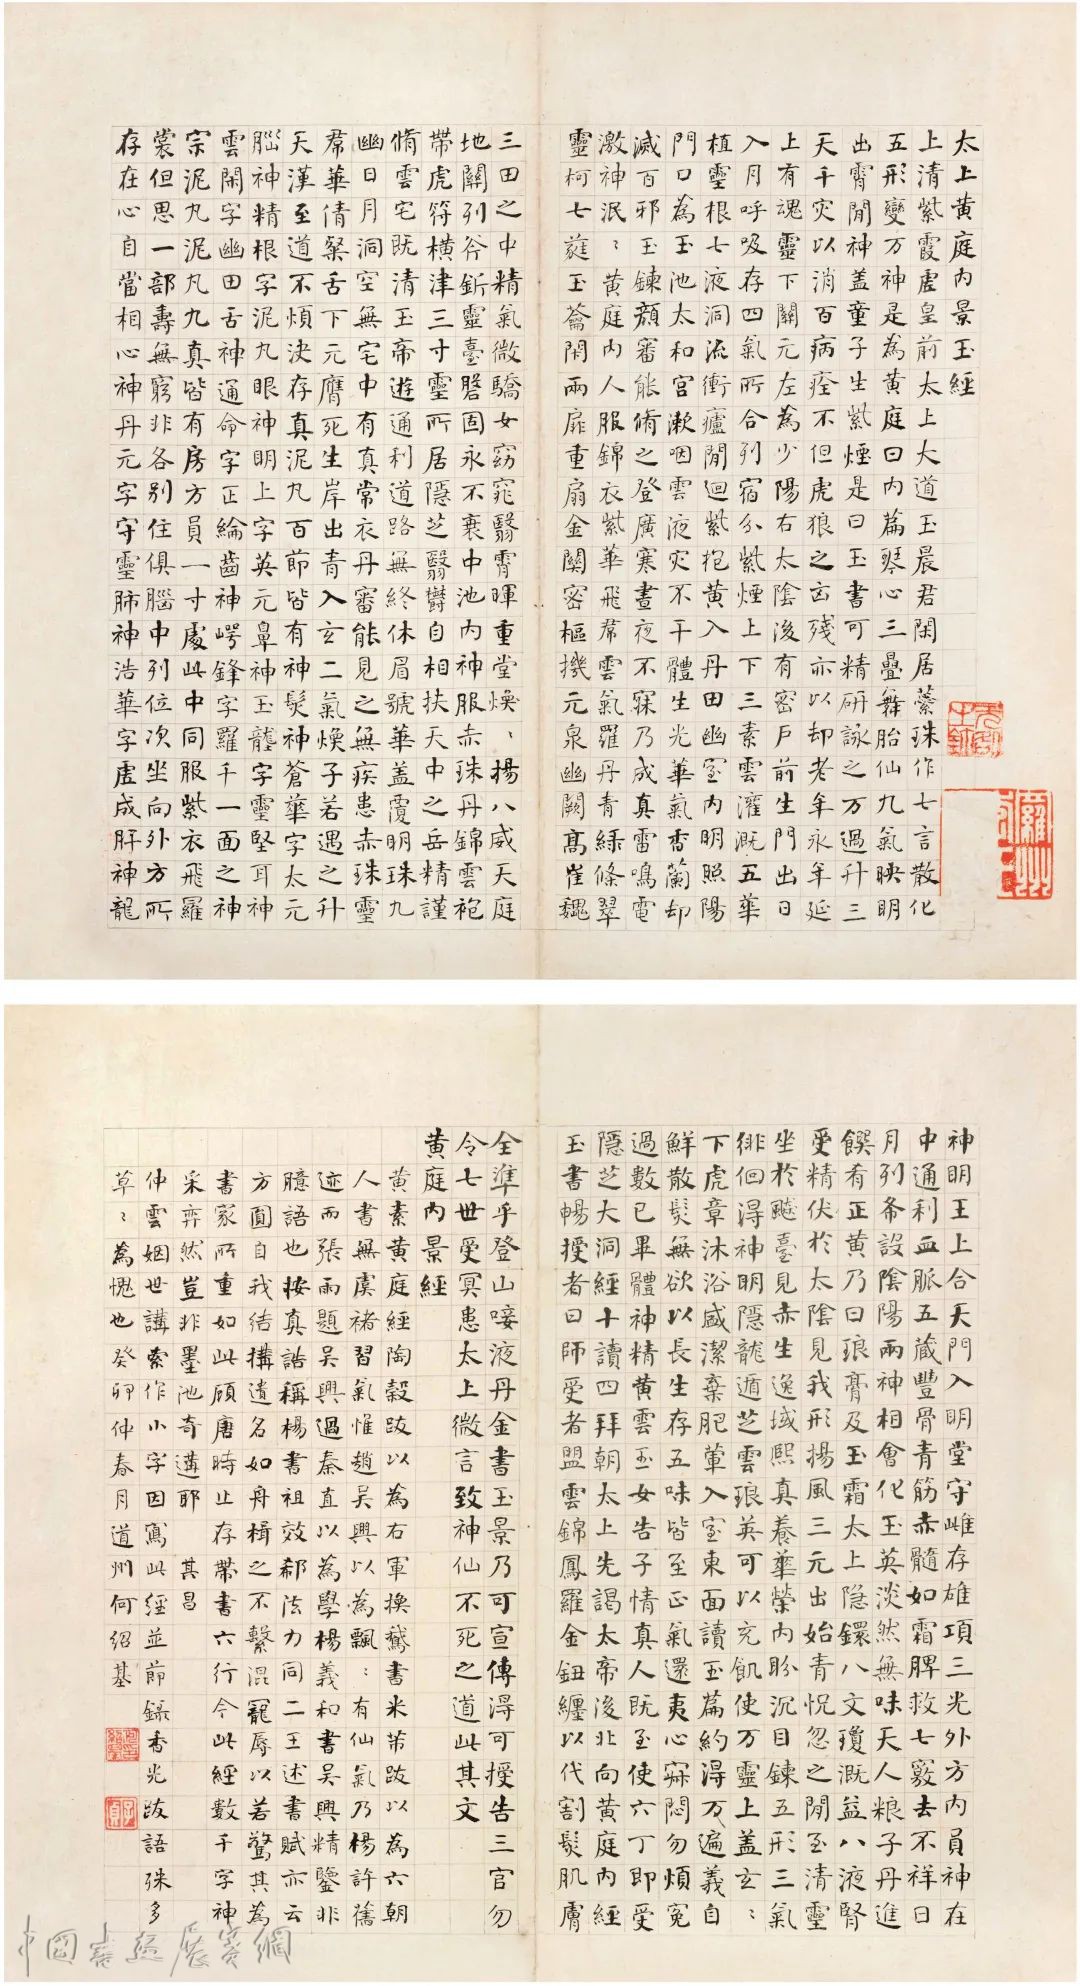 太上黃庭內景玉經
上清紫霞虛皇前太上大道玉晨君閑居蘂珠作七言散化
五形變万神是為黃庭曰內篇琴心三疊舞胎仙九氣映明
出霄閒神盖童子生紫煙是曰玉書可精研詠之万過升三
天千灾以消百病痊不但虎狼之凶殘亦以却老年永年延
上有魂靈下關元左為少陽右太陰後有密戶前生門出日
入月呼吸存四氣所合列宿分紫煙上下三素雲灌溉五華
植靈根七液洞流衝廬閒迴紫抱黃入丹田幽室內明照陽
門口為玉池太和宮漱咽雲液灾不干體生光華氣香蘭却
滅百邪玉鍊顏審能脩之登廣寒晝夜不寐乃成真雷鳴電
激神泯〻黃庭內人服錦衣紫華飛帬雲氣羅丹青綠條翠
靈柯七蕤玉籥閉兩扉重扇金關密樞機元泉幽闕高崔巍
三田之中精氣微驕女窈窕翳霄暉重堂煥〻揚八威天庭
地關列斧釿靈臺盤固永不衰中池內神服赤珠丹錦雲袍
帶虎符橫津三寸靈所居隱芝翳鬱自相扶天中之岳精謹
脩雲宅既清玉帝遊通利道路無終休眉號華盖覆明珠九
幽日月洞空無宅中有真常衣丹審能見之無疾患赤珠靈
帬華倩粲舌下元膺死生岸出青入玄二氣煥子若遇之升
天漢至道不煩決存真泥丸百節皆有神髮神蒼華字太元
腦神精根字泥丸眼神明上字英元鼻神玉壟字靈堅耳神
雲閑字幽田舌神通命字正綸齒神崿鋒字羅千一面之神
宗泥丸泥丸九真皆有房方員一寸處此中同服紫衣飛羅
裳但思一部壽無窮非各別住俱腦中列位次坐向外方所
存在心自當相心神丹元字守靈肺神浩華字虛成肝神龍
神明王上合天門入明堂守雌存雄項三光外方內員神在
中通利血脈五藏豐骨青筋赤髓如霜脾救七竅去不祥日
月列布設陰陽兩神相會化玉英淡然無味天人粮子丹進
饌肴正黃乃曰琅膏及玉霜太上隱鐶八文瓊溉益八液腎
受精伏於太陰見我形揚風三元出始青怳忽之閒至清靈
坐於飈臺見赤生逸域熙真養華榮內盼沉目鍊五形三氣
徘徊得神明隱龍遁芝雲琅英可以充飢使万靈上盖玄〻
下虎章沐浴盛潔棄肥葷入室東面讀玉篇約得万遍義自
鮮散髮無欲以長生存五味皆至正氣還夷心寂悶勿煩冤
過數已畢體神精黃雲玉女告子情真人既至使六丁即受
隱芝大洞經十讀四拜朝太上先謁太帝後北向黃庭內經
玉書暢授者曰師受者盟雲錦鳳羅金鈕纏以代割髮肌膚
全準乎登山唼液丹金書玉景乃可宣傳得可授告三官勿
令七世受冥患太上微言致神仙不死之道此其文
黃庭內景經
黃素黃庭經陶穀跋以為右軍換鵝書米芾跋以為六朝
人書無虞褚習氣惟趙吳興以為飄〻有仙氣乃楊許舊
迹而張雨題吳興過秦直以為學楊羲和書吳興精鑒非
臆語也按真誥稱楊書祖效郗法力同二王述書賦亦云
方圓自我結搆遺名如舟楫之不繫混寵辱以若驚其為
書家所重如此顧唐時止存帶書六行今此經數千字神
采弈然豈非墨池奇遘耶 其昌
仲雲姻世講索作小字因寫此經並節錄香光跋語殊多
草〻為愧也癸卯仲春月道州何紹基
何紹基印
子貞
中國書法展賽網